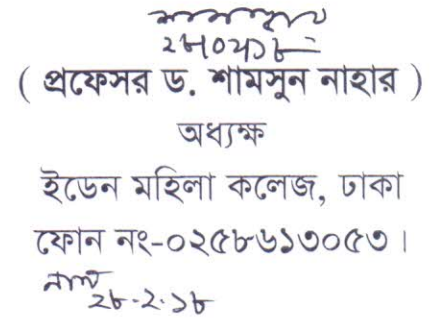 ২৮/০২/১৮
( প্রফেসর ড. শামসুন নাহার )
অধ্যক্ষ
ইডেন মহিলা কলেজ, ঢাকা
ফোন নং-০২৫৮৬১৩০৫৩।
২৮.২.১৮